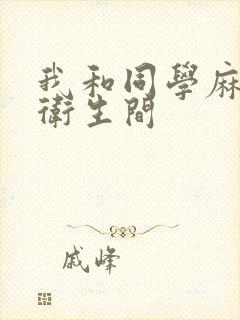 我和同學麻
衛生間
戚峰